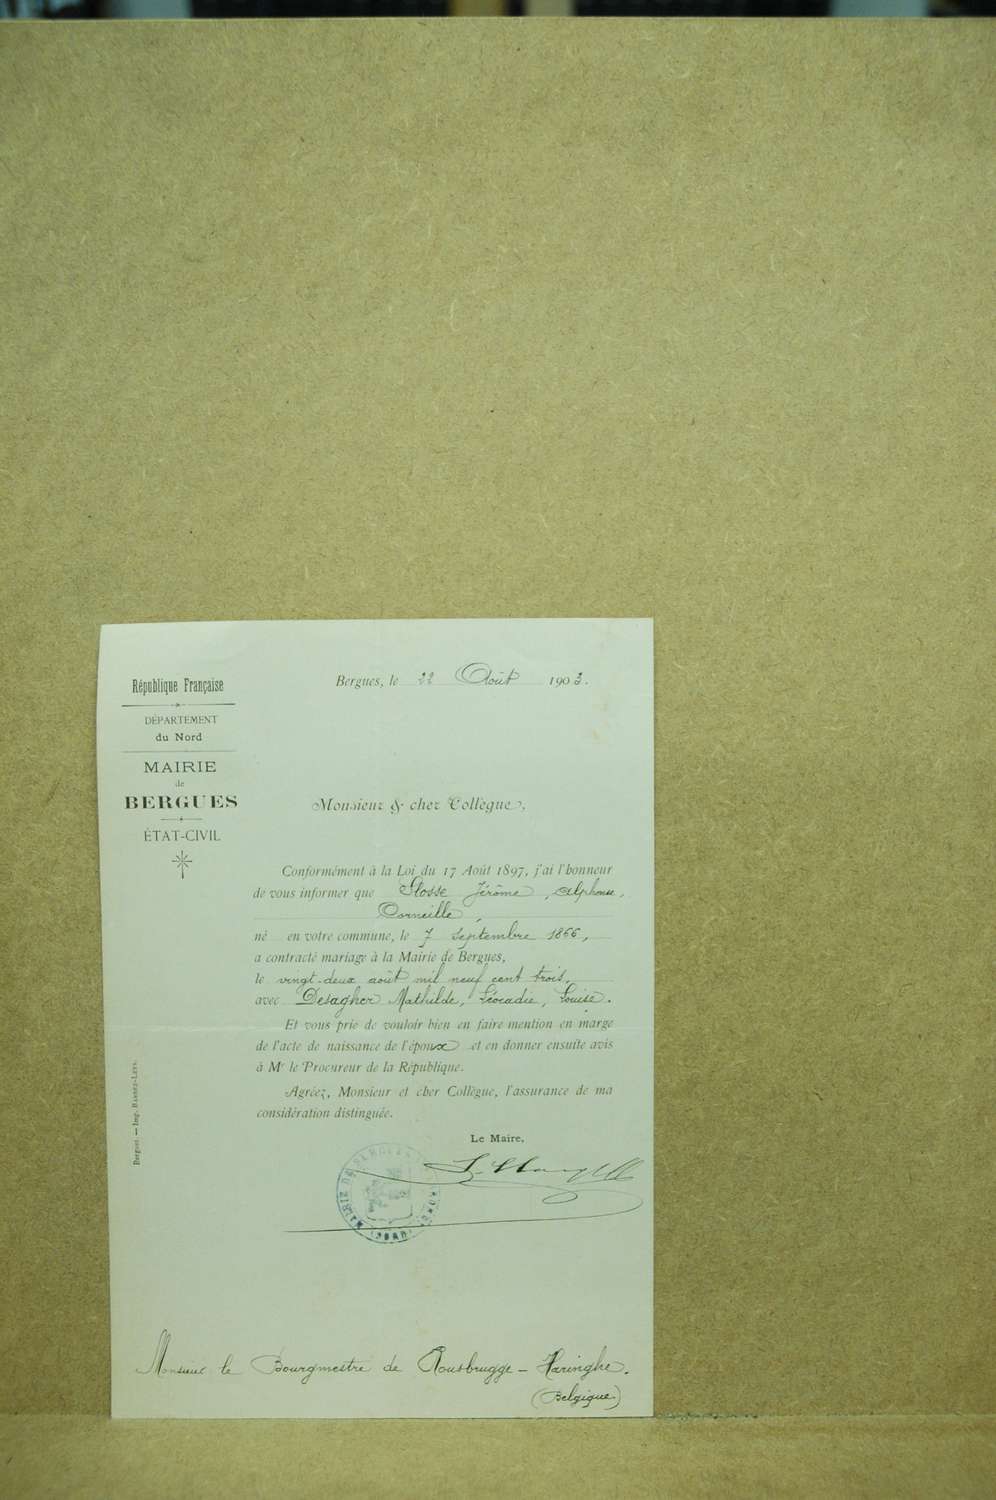 République Française
DÉPARTEMENT
du Nord
MAIRIE
de
BERGUES
ÉTAT-CIVIL
Bergues, le 22 Août 1903.
Monsieur & cher Collègue,
Conformément à la Loi du 17 Août 1897, j'ai l'honneur
de vous informer que Slosse Jérôme, Alphonse,
Corneille,
né en votre commune, le 7 Septembre 1866,
a contracté mariage à la Mairie de Bergues,
le vingt-deux août mil neuf cent trois,
avec Desagher Mathilde, Léocadie, Louise.
Et vous prie de vouloir bien en faire mention en marge
de l'acte de naissance de l'époux et en donner ensuite avis
à Mr le Procureur de la République.
Agréez, Monsieur et cher Collègue, l'assurance de ma
considération distinguée.
Le Maire,
MAIRIE DE BERGUES
(NORD)
Bergues. — Imp.
Monsieur le Bourgmestre de Rousbrugge - Haringhe.
(Belgique)